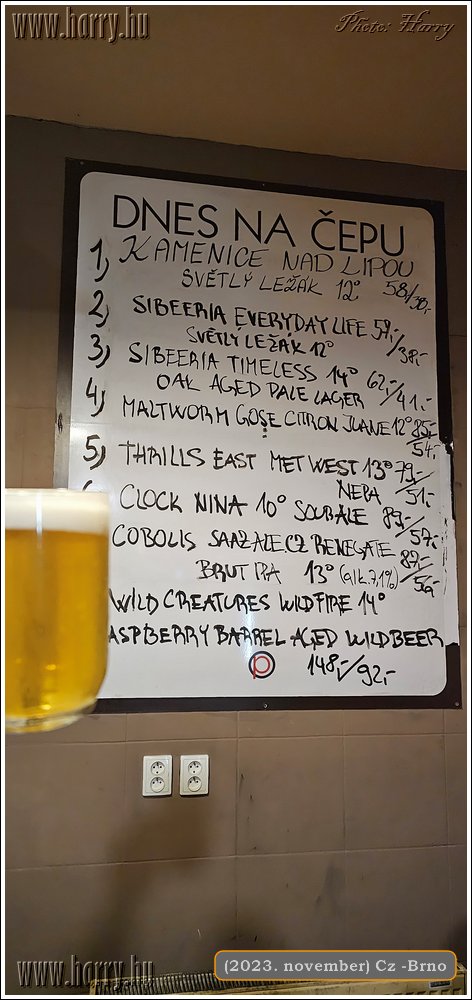 www.harry.hu
Photo: Harry
DNES NA ČEPU
1, KAMENICE NAD LIPOU
SVĚTLÝ LEŽÁK 12° 58/38,-
2, SIBEERIA EVERYDAY LIFE 59,-/38,-
SVĚTLY LEŽÁK 12°
3, SIBEERIA TIMELESS 14° 62,-/41,-
OAK AGED PALE LAGER
4, MALTWORM GOSE CITRON 12° 85,-
54,-
5, THRILLS EAST MET WEST 13° 79,-
NEPA /51,-
CLOCK NINA 10° SOUR ALE 89,-/57,-
COBOLIS SAAZ ALE CZ RENEGATE
BRUT IPA 13° (alk. 7,1%)
WILD CREATURES WILDFIRE 14°
ASPBERRY BARREL AGED WILDBEER
148,-/92,-
www.harry.hu
(2023. november) Cz -Brno